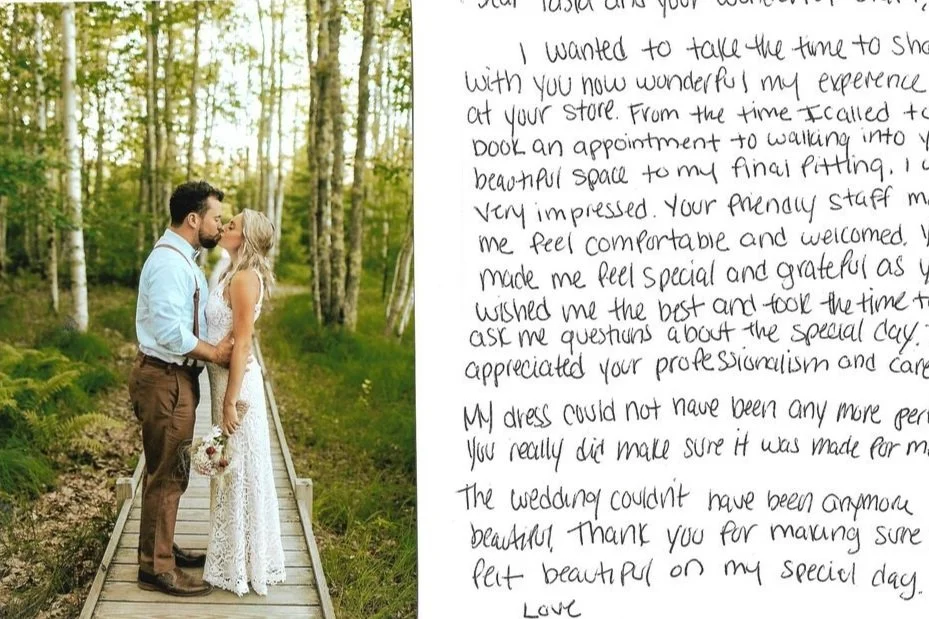 your wonderful
I wanted to take the time to sho
with you how wonderful my experence
at your store. From the time I called to
book an appointment to walking into y
beautiful space to my final fitting. I
very impressed. Your friendly staff m
me feel comfortable and welcomed. Y
made me feel special and grateful as y
wished me the best and took the time t
ask me questions about the special day.
appreciated your professionalism and care
My dress could not have been any more per
You really did make sure it was made for m
The wedding couldn't have been anymore
beautiful. Thank you for making sure
felt beautiful on my special day.
Love